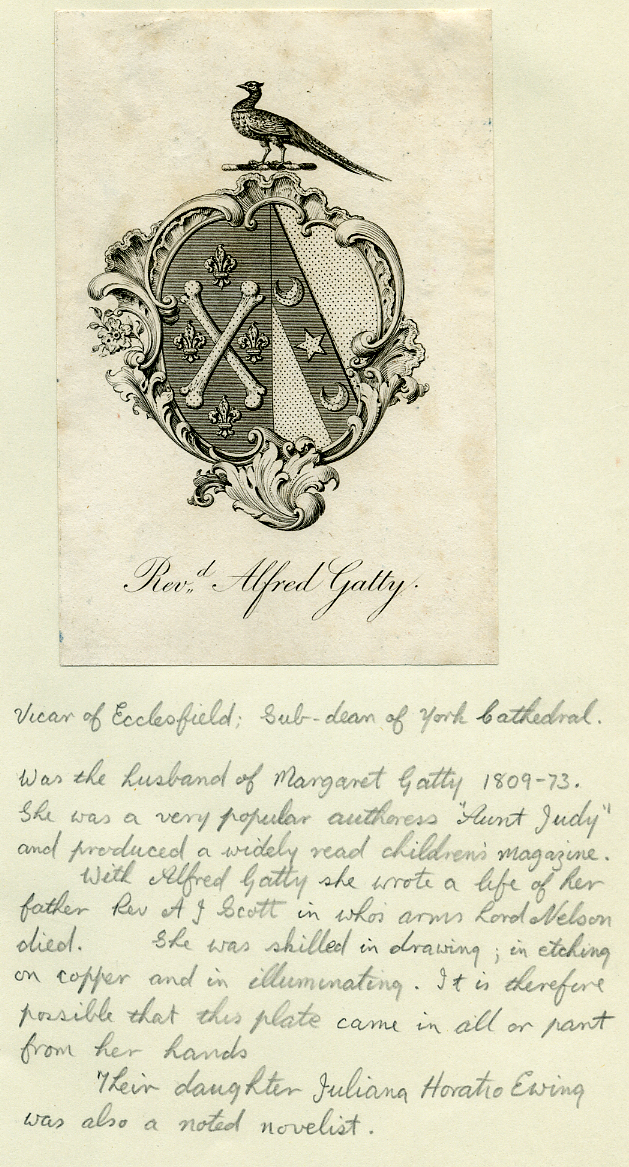 Rev,,d Alfred Gatty.
Vicar of Ecclesfield; Sub-dean of York Cathedral.
Was the husband of Margaret Gatty 1809-73.
She was a very popular authoress "Aunt Judy"
and produced a widely read children's magazine.
With Alfred Gatty she wrote a life of her
father Rev A J Scott in who's arms Lord Nelson
died. She was skilled in drawing; in etching
on copper and in illuminating. It is therefore
possible that this plate came in all or part
from her hands
Their daughter Juliana Horatio Ewing
was also a noted novelist.